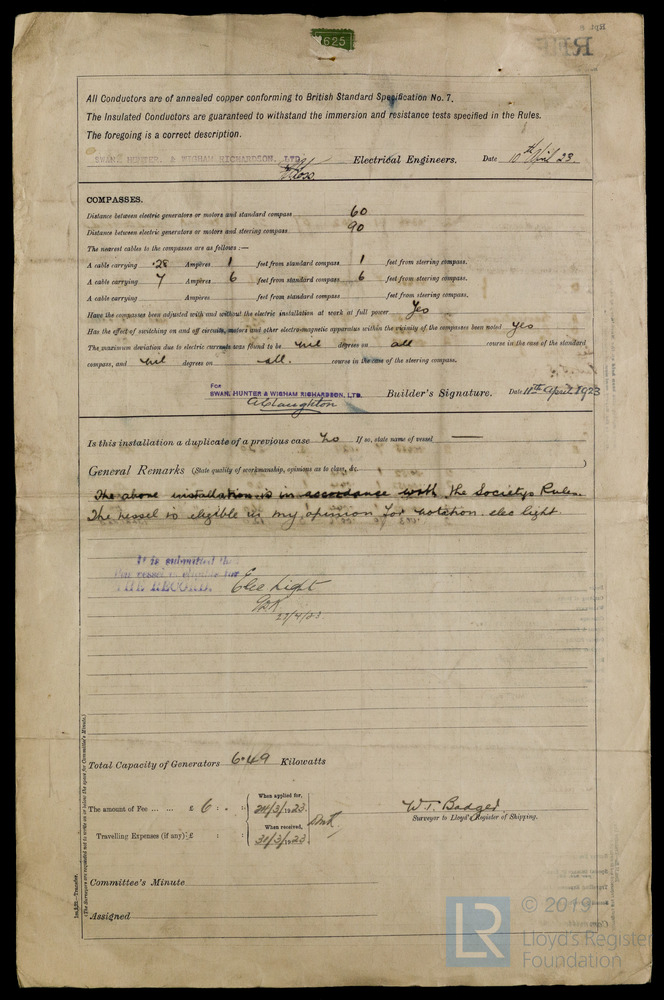 625
All Conductors are of annealed copper conforming to British Standard Specification No. 7.
The Insulated Conductors are guaranteed to withstand the immersion and resistance tests specified in the Rules.
The foregoing is a correct description.
SWAN, HUNTER, & WIGHAM RICHARDSON, LTD. Electrical Engineers. Date 10th April 23.
COMPASSES.
Distance between electric generators or motors and standard compass 60
Distance between electric generators or motors and steering compass 90
The nearest cables to the compasses are as follows :—
A cable carrying .28 Ampères 1 feet from standard compass 1 feet from steering compass.
A cable carrying 7 Ampères 6 feet from standard compass 6 feet from steering compass.
A cable carrying Ampères feet from standard compass feet from steering compass.
Have the compasses been adjusted with and without the electric installation at work at full power Yes
Has the effect of switching on and off circuits, motors and other electro-magnetic apparatus within the vicinity of the compasses been noted yes
The maximum deviation due to electric currents was found to be nil degrees on all course in the case of the standard
compass, and nil degrees on all. course in the case of the steering compass.
FOR
SWAN, HUNTER & WIGHAM RICHARDSON, LTD. Builder's Signature. Date 11th April 1923
Is this installation a duplicate of a previous case no If so, state name of vessel —
General Remarks (State quality of workmanship, opinions as to class, &c.
The above installation is in accordance with the Societys Rules.
The vessel is eligible in my opinion for notation elec light.
It is submitted that
this vessel is eligible for
THE RECORD. Elec Light
27/4/23
Total Capacity of Generators 6.49 Kilowatts
The amount of Fee ... ... £ 6 : . :
When applied for,
24/3/1923
Travelling Expenses (if any) £ : :
When received,
31/3/1923
W.T. Badger.
Surveyor to Lloyd's Register of Shipping.
Committee's Minute
Assigned
Im.8.20.—Transfer.
(The Surveyors are requested not to write on or below the space for Committee's Minute.)
LR © 2019
Lloyd's Register
Foundation